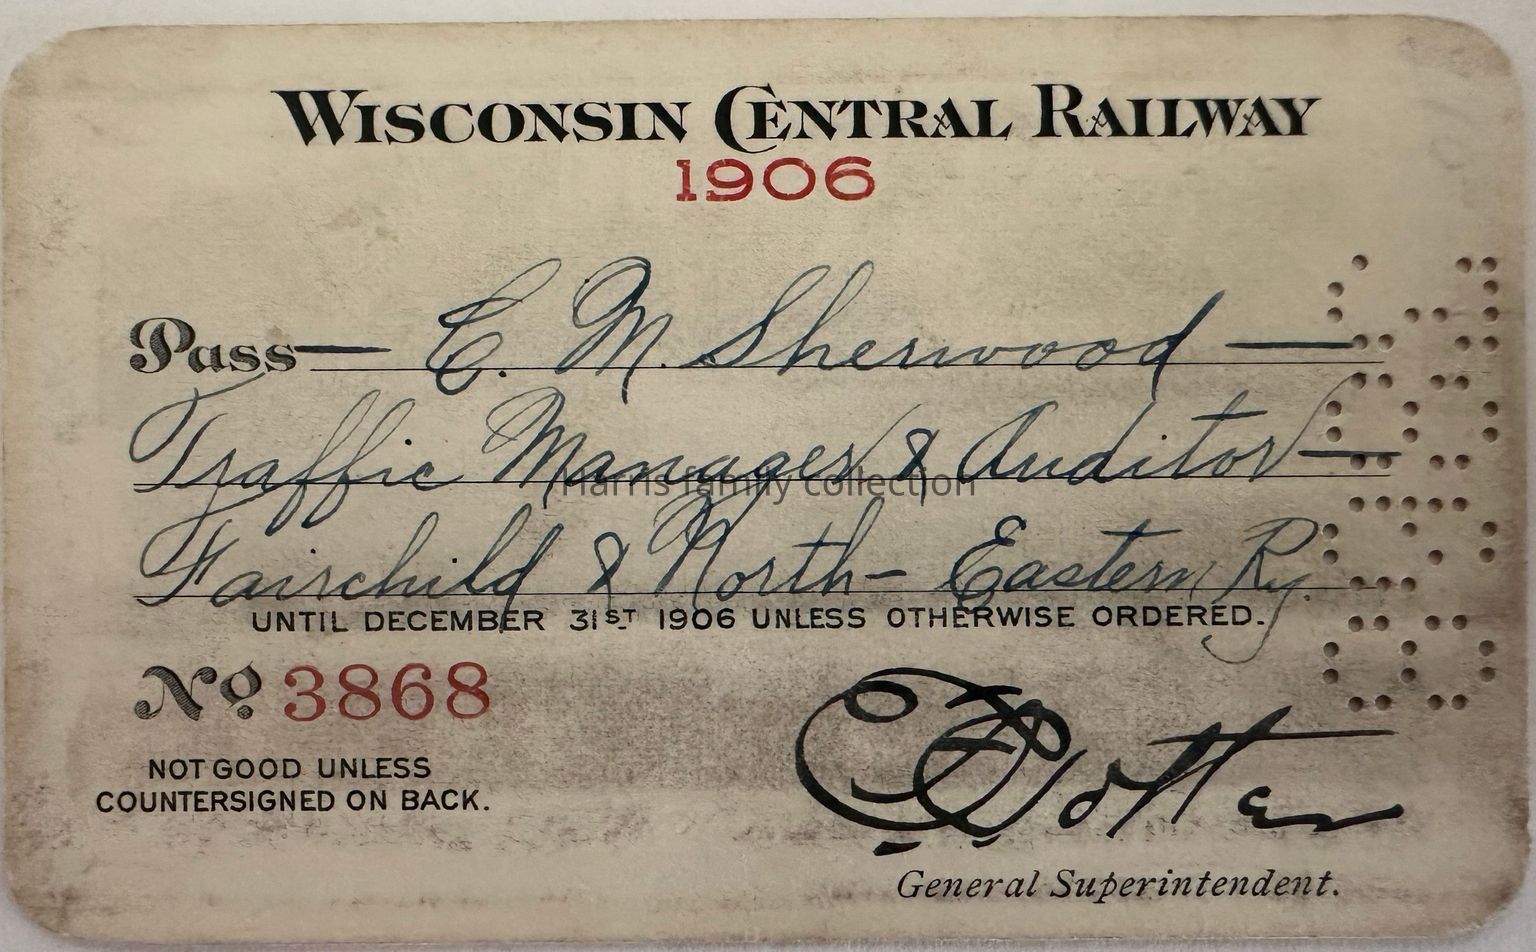 WISCONSIN CENTRAL RAILWAY
1906
Pass — E. M. Sherwood —
Traffic Manager & Auditor —
Fairchild & North-Eastern Ry.
UNTIL DECEMBER 31ST 1906 UNLESS OTHERWISE ORDERED.
No. 3868
NOT GOOD UNLESS
COUNTERSIGNED ON BACK.
General Superintendent.
Harris family collection